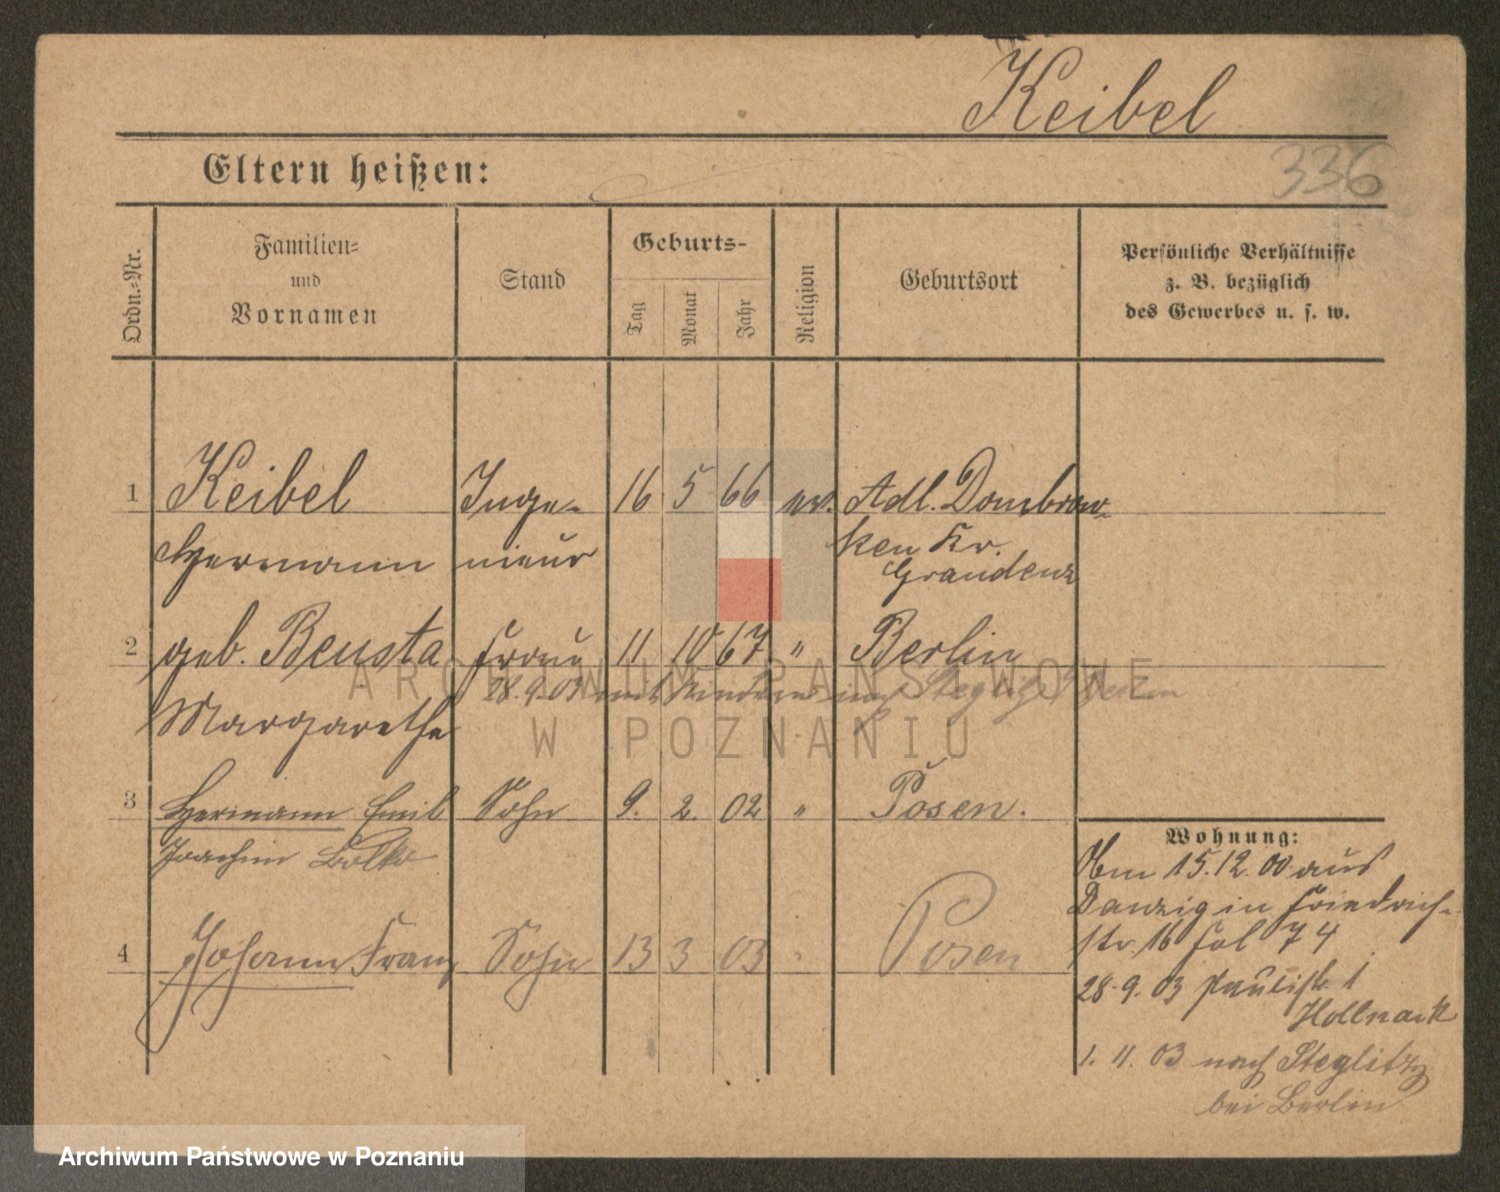 Keibel
336
Eltern heißen:
Ordn.-Nr.
Familien-
und
Vornamen
Stand
Geburts-
Tag
Monat
Jahr
Religion
Geburtsort
Persönliche Verhältnisse
z. B. bezüglich
des Gewerbes u. s. w.
1 Keibel Inge- 16 5 66 ev. Adl. Dombrow-
Hermann nieur ken Kr.
Graudenz
2 geb. Beusta Frau 11 10 67 " Berlin
28.9.03 mit Kindern nach Steglitz Berlin
Margarethe
3 Hermann Emil Sohn 9. 2. 02 " Posen.
Joachim
4 Johann Franz Sohn 13 3 03 " Posen
Wohnung:
15.12.00 aus
Danzig in Friedrich-
str. 16 74
28.9.03 Paulistr. 1
Hollnack
1. 11. 03 nach Steglitz
bei Berlin
ARCHIWUM PAŃSTWOWE
W POZNANIU
Archiwum Państwowe w Poznaniu